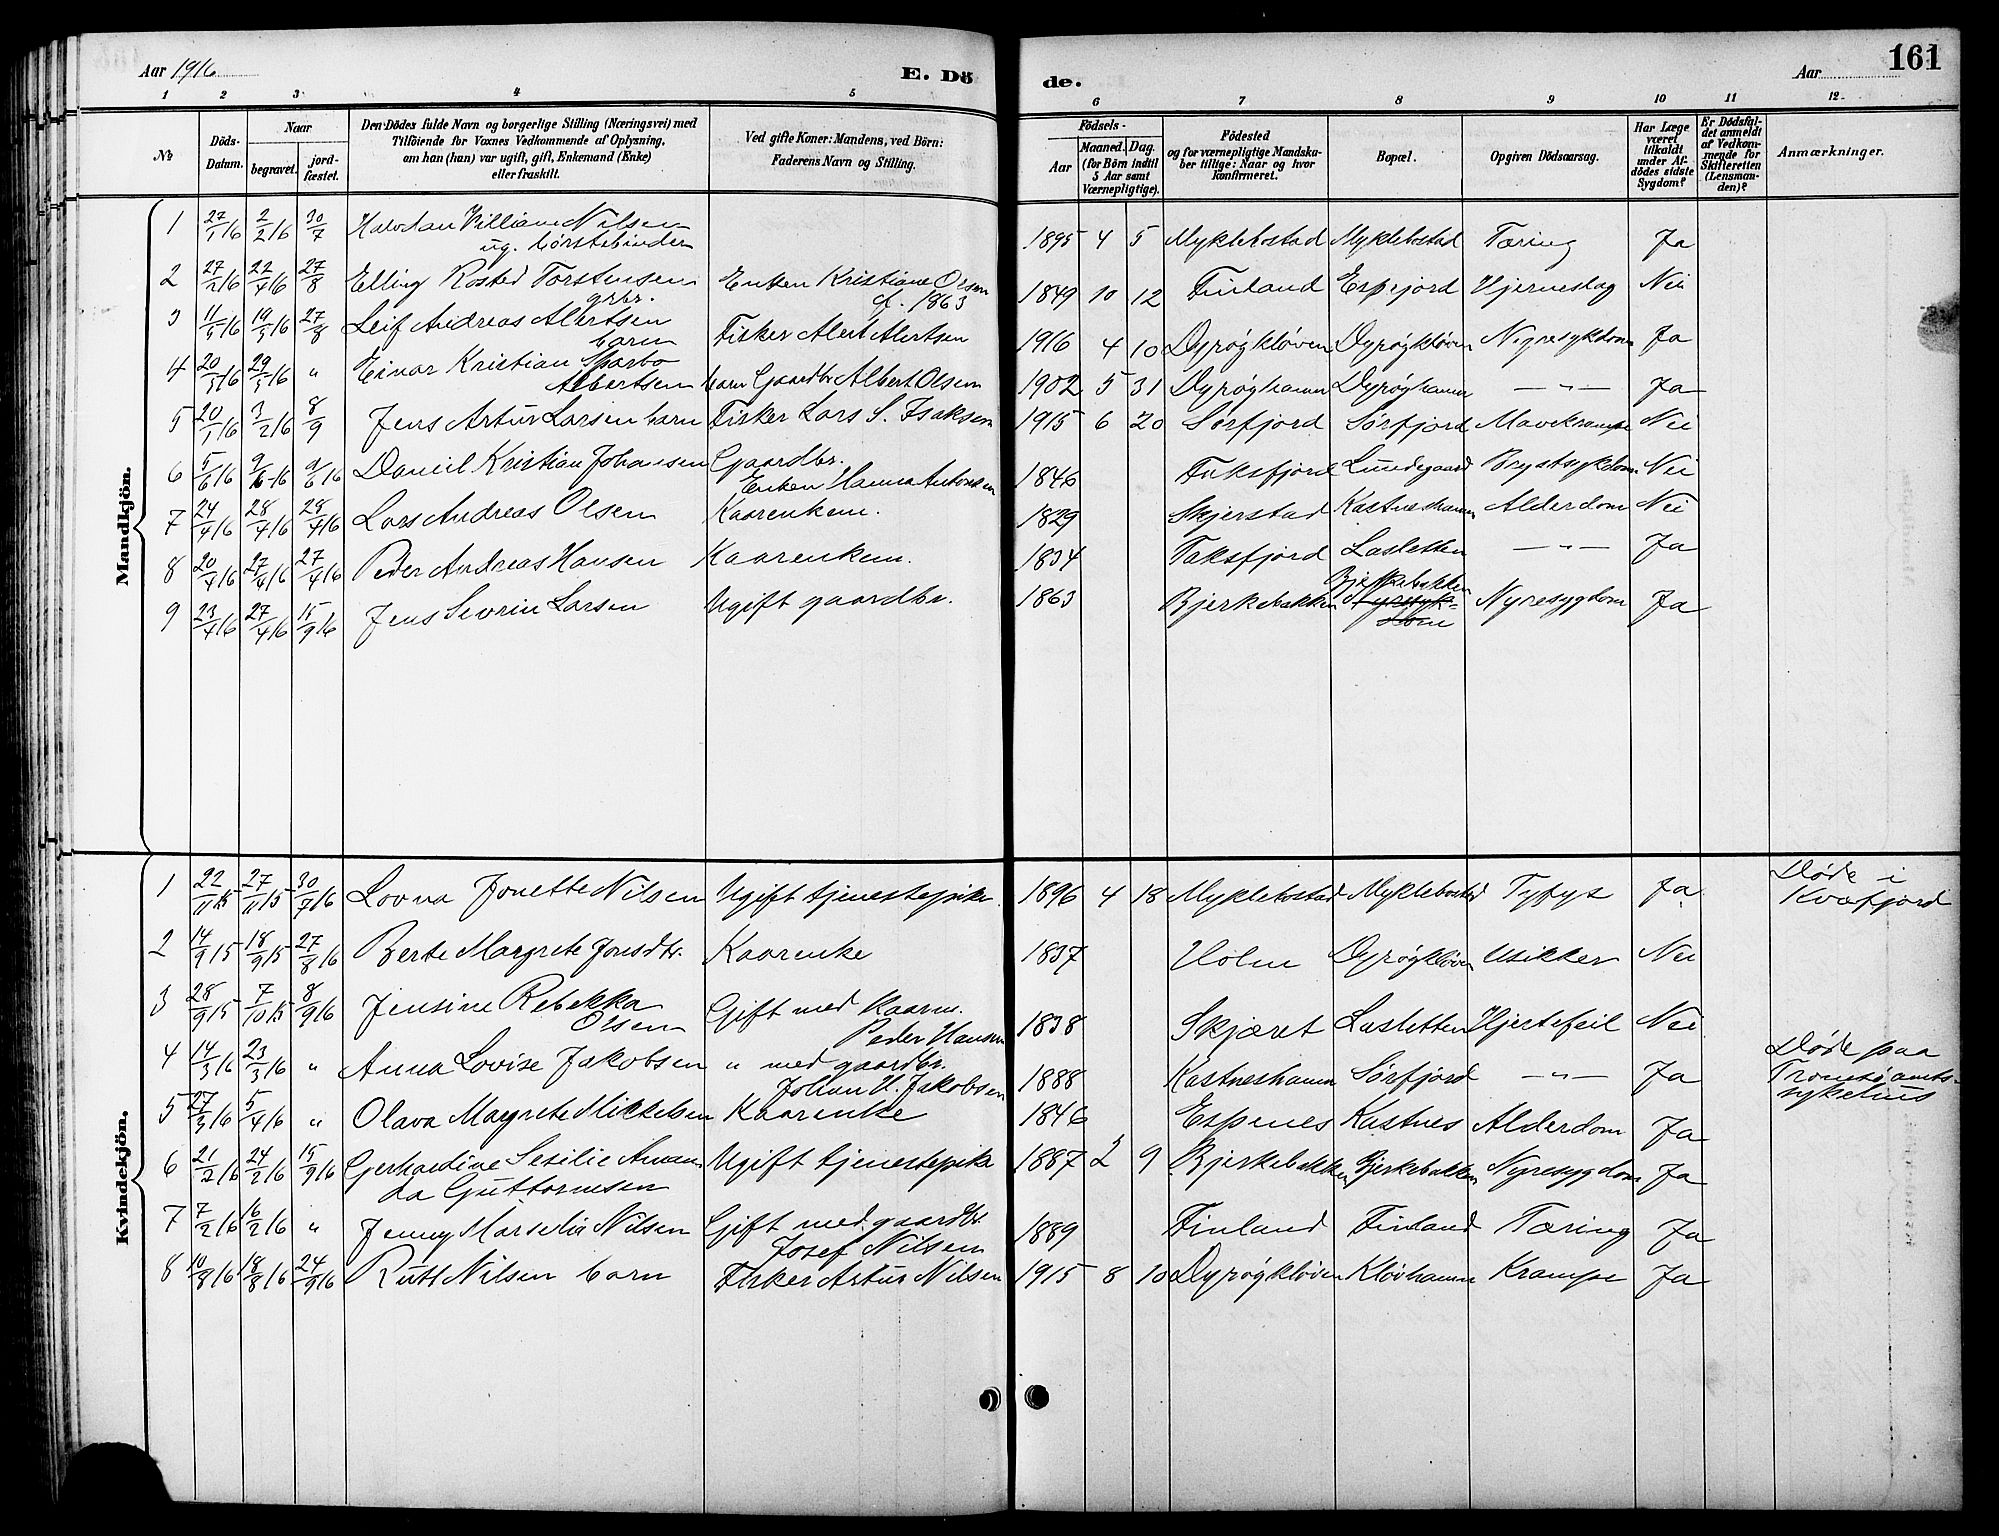 Aar 1916
E. Dö
de.
Aar
161
1 2 3 4 5
6 7 8 9 10 11 12
№
Döds-
Datum.
Naar
begravet.
jord-
fæstet.
Den Dödes fulde Navn og borgerlige Stilling (Næringsvei) med
Tilföiende for Voxnes Vedkommende af Oplysning,
om han (han) var ugift, gift, Enkemand (Enke)
eller fraskilt.
Ved gifte Koner: Mandens, ved Börn:
Faderens Navn og Stilling.
Födsels-
Aar
Maaned. Dag.
(for Börn indtil
5 Aar samt
Værnepligtige).
Födested
og for værnepligtige Mandska-
ber tillige: Naar og hvor
konfirmeret.
Bopæl.
Opgiven Dödsaarsag.
Har Læge
været
tilkaldt
under Af-
dödes sidste
Sygdom?
Er Dödsfal-
det anmeldt
af Vedkom-
mende for
Skifteretten
(Lensman-
den)?
Anmærkninger.
Mandkjön.
1 27/1 16 2/2 16 30/7 Halvdan Villiam Nilsen
ug. børstebinder
1895 4 5 Myklebostad Myklebostad Tæring Ja
2 27/2 16 22/4 16 27/8 Elling Rosted Torstensen Enken Kristiane Olsen
grbr. f. 1863
1849 10 12 Finland Espejord Hjerneslag Nei
3 11/5 16 19/5 16 27/8 Leif Andreas Alertsen
barn Fisker Alert Alertsen
1916 4 10 Dyrøykløven Dyrøykløven Nyresykdom Ja
4 20/5 16 29/5 16 " Einar Kristian Sparbo
Albertsen barn Gaardbr Albert Olsen
1902 5 31 Dyrøyhamn Dyrøyhamn —"— Ja
5 20/1 16 3/2 16 8/9 Jens Artur Larsen barn Fisker Lars S. Isaksen
1915 6 20 Sørfjord Sørfjord Mavekrampe Nei
6 5/6 16 9/6 16 9/6 16 Daniel Kristian Johansen Gaardbr.
Enken Hanna Antonsen
1846 Faksfjord Lundegaard Brystsykdom Nei
7 24/4 16 28/4 16 28/4 16 Lars Andreas Olsen Kaarenkem.
1829 Skjerstad Kastneshamn Alderdom Nei
8 20/4 16 27/4 16 27/4 16 Peder Andreas Hansen Kaarenkem.
1834 Taksfjord Lasletten —"— Ja
9 23/4 16 27/4 16 15/9 16 Jens Sevrin Larsen Ugift gaardbr.
Bjerkebakken
1863 Bjerkebakken Nyresyk-
dom Nyresygdom Ja
Kvindekjön.
1 22/11 15 27/11 15 30/7 16 Lovna Jonette Nilsen Ugift tjenestepike
1896 4 18 Myklebostad Myklebostad Tyfys Ja Døde i
Kvæfjord
2 14/9 15 18/9 15 27/8 16 Berte Margrete Jonsdtr. Kaarenke
1837 Holm Dyrøykløven Usikker Nei
3 28/9 15 7/10 15 8/9 16 Jensine Rebekka
Olsen Gift med Kaarm.
Peder Hansen
1838 Skjæret Lasletten Hjertefeil Nei
4 14/3 16 23/3 16 " Anna Lovise Jakobsen " med gaardbr.
Johan H. Jakobsen
1888 Kastneshamn Sørfjord —"— Ja Døde paa
Tromsø amts-
sykehus
5 27/3 16 5/4 16 " Olava Margrete Mikkelsen Kaarenke
1846 Espenes Kastnes Alderdom Ja
6 21/2 16 24/2 16 15/9 16 Gerhardine Sesilie Aman-
da Guttormsen Ugift tjenestepike
1887 2 9 Bjerkebakken Bjerkebakken Nyresygdom Ja
7 7/2 16 16/2 16 " Jenny Marselia Nilsen Gift med gaardbr.
Josef Nilsen
1889 Finland Finland Tæring Ja
8 10/8 16 18/8 16 24/9 16 Rutt Nilsen barn Fisker Artur Nilsen
1915 8 10 Dyrøykløven Kløvhamn Krampe Ja